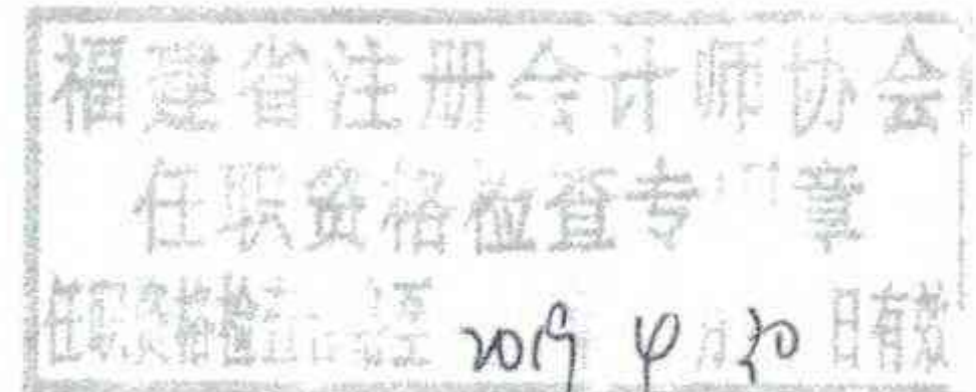 福建省注册会计师协会
任职资格检查专用章
任职资格检查 至 2019 4 月 30 日有效